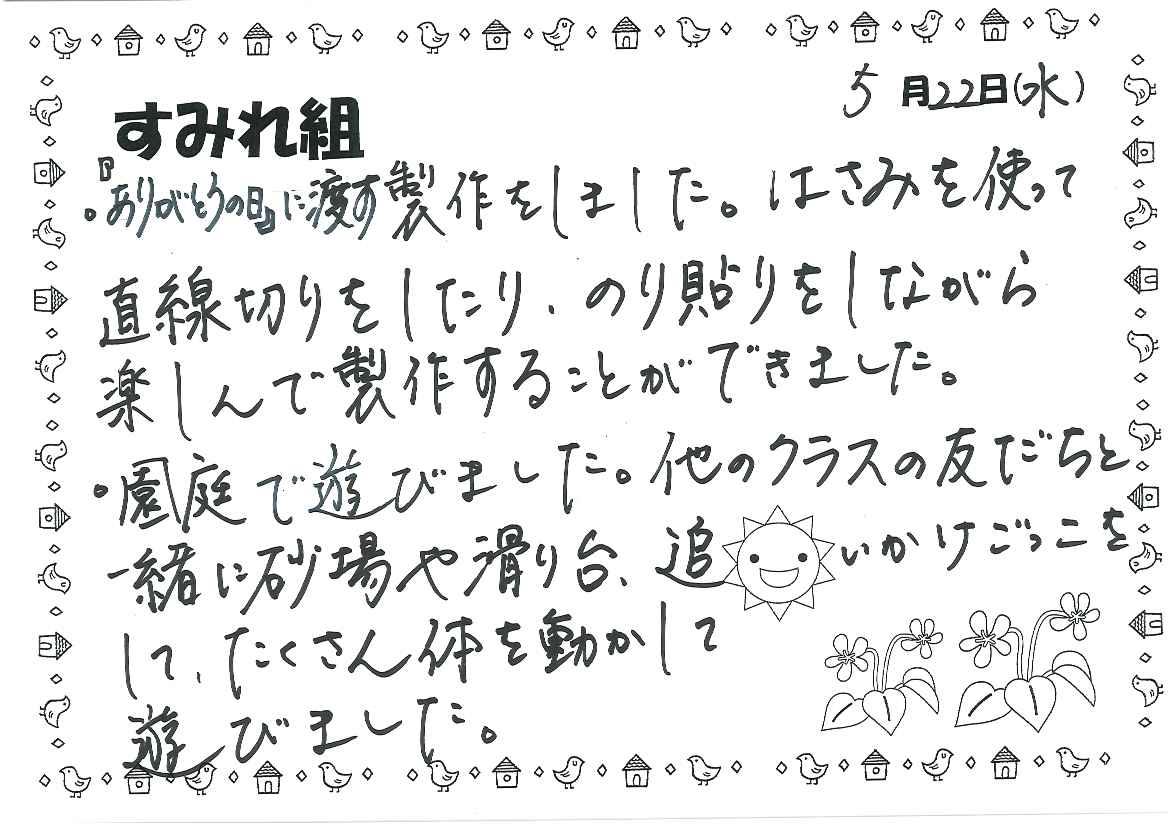 5月22日(水)
すみれ組
。『ありがとうの日』に渡す製作をしました。はさみを使って
直線切りをしたり、のり貼りをしながら
楽しんで製作することができました。
。園庭で遊びました。他のクラスの友だちと
一緒に砂場や滑り台、追いかけごっこを
して、たくさん体を動かして
遊びました。